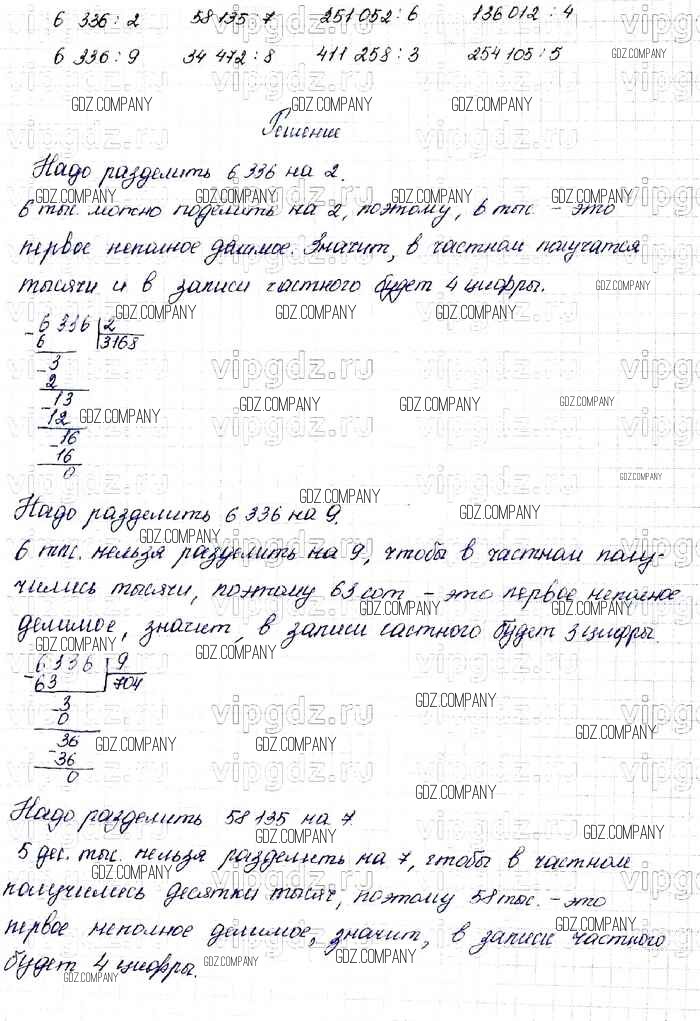 6 336 : 2 58 135 : 7 251 052 : 6 136 012 : 4
6 336 : 9 34 472 : 8 411 258 : 3 254 105 : 5
Решение
Надо разделить 6 336 на 2.
6 тыс. можно поделить на 2, поэтому, 6 тыс. – это
первое неполное делимое. Значит, в частном получатся
тысячи и в записи частного будет 4 цифры.
6 336 | 2
- 6 3168
- 3
2
- 13
12
- 16
16
0
Надо разделить 6 336 на 9.
6 тыс. нельзя разделить на 9, чтобы в частном полу-
чились тысячи, поэтому 63 сот – это первое неполное
делимое, значит, в записи частного будет 3 цифры.
6 336 | 9
- 63 704
- 3
0
36
- 36
0
Надо разделить 58 135 на 7
5 дес. тыс. нельзя разделить на 7, чтобы в частном
получились десятки тысяч, поэтому 58 тыс. – это
первое неполное делимое, значит, в записи частного
будет 4 цифры.
GDZ.COMPANY
vipgdz.ru